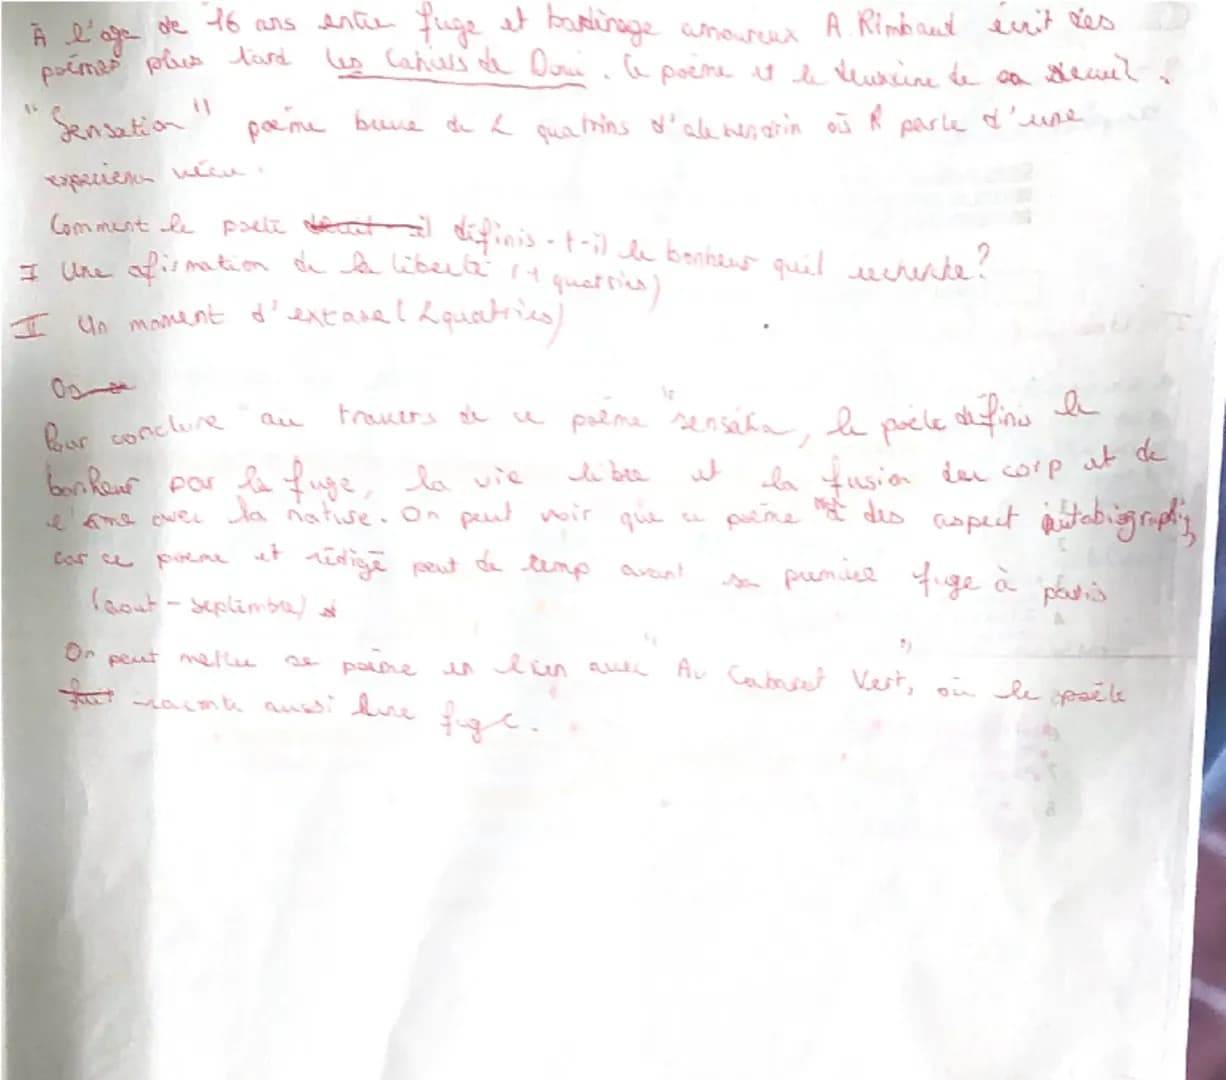 À l'age de 16 ans entre fuge et badinage amoureux A. Rimbaud écrit des
poèmes plus tard Les Cahiers de Doui. Ce poème est le deuxième de ce recueil.
"Sensation" poème breve de 2 quatrins d'alexendrin où R parle d'une
experience vécu.
Comment le poète définis-t-il le bonheur quil recherche?
I Une afirmation de la liberté (1 quatrins)
II Un moment d'extase (2 quatrins)
On
Pour conclure au travers de ce poème "sensation, le poète définis le
bonheur par la fuge, la vie libre et la fusion du corp et de
l'âme avec la nature. On peut voir que ce poème est des aspect autobiographiq,
car ce poeme et rédigé peut de temp avant sa première fuge à paris
(aout - septembre)
On peut mettre se poème en lien avec "Au Cabaret Vert", où le poète
fait raconte aussi lune fuge.